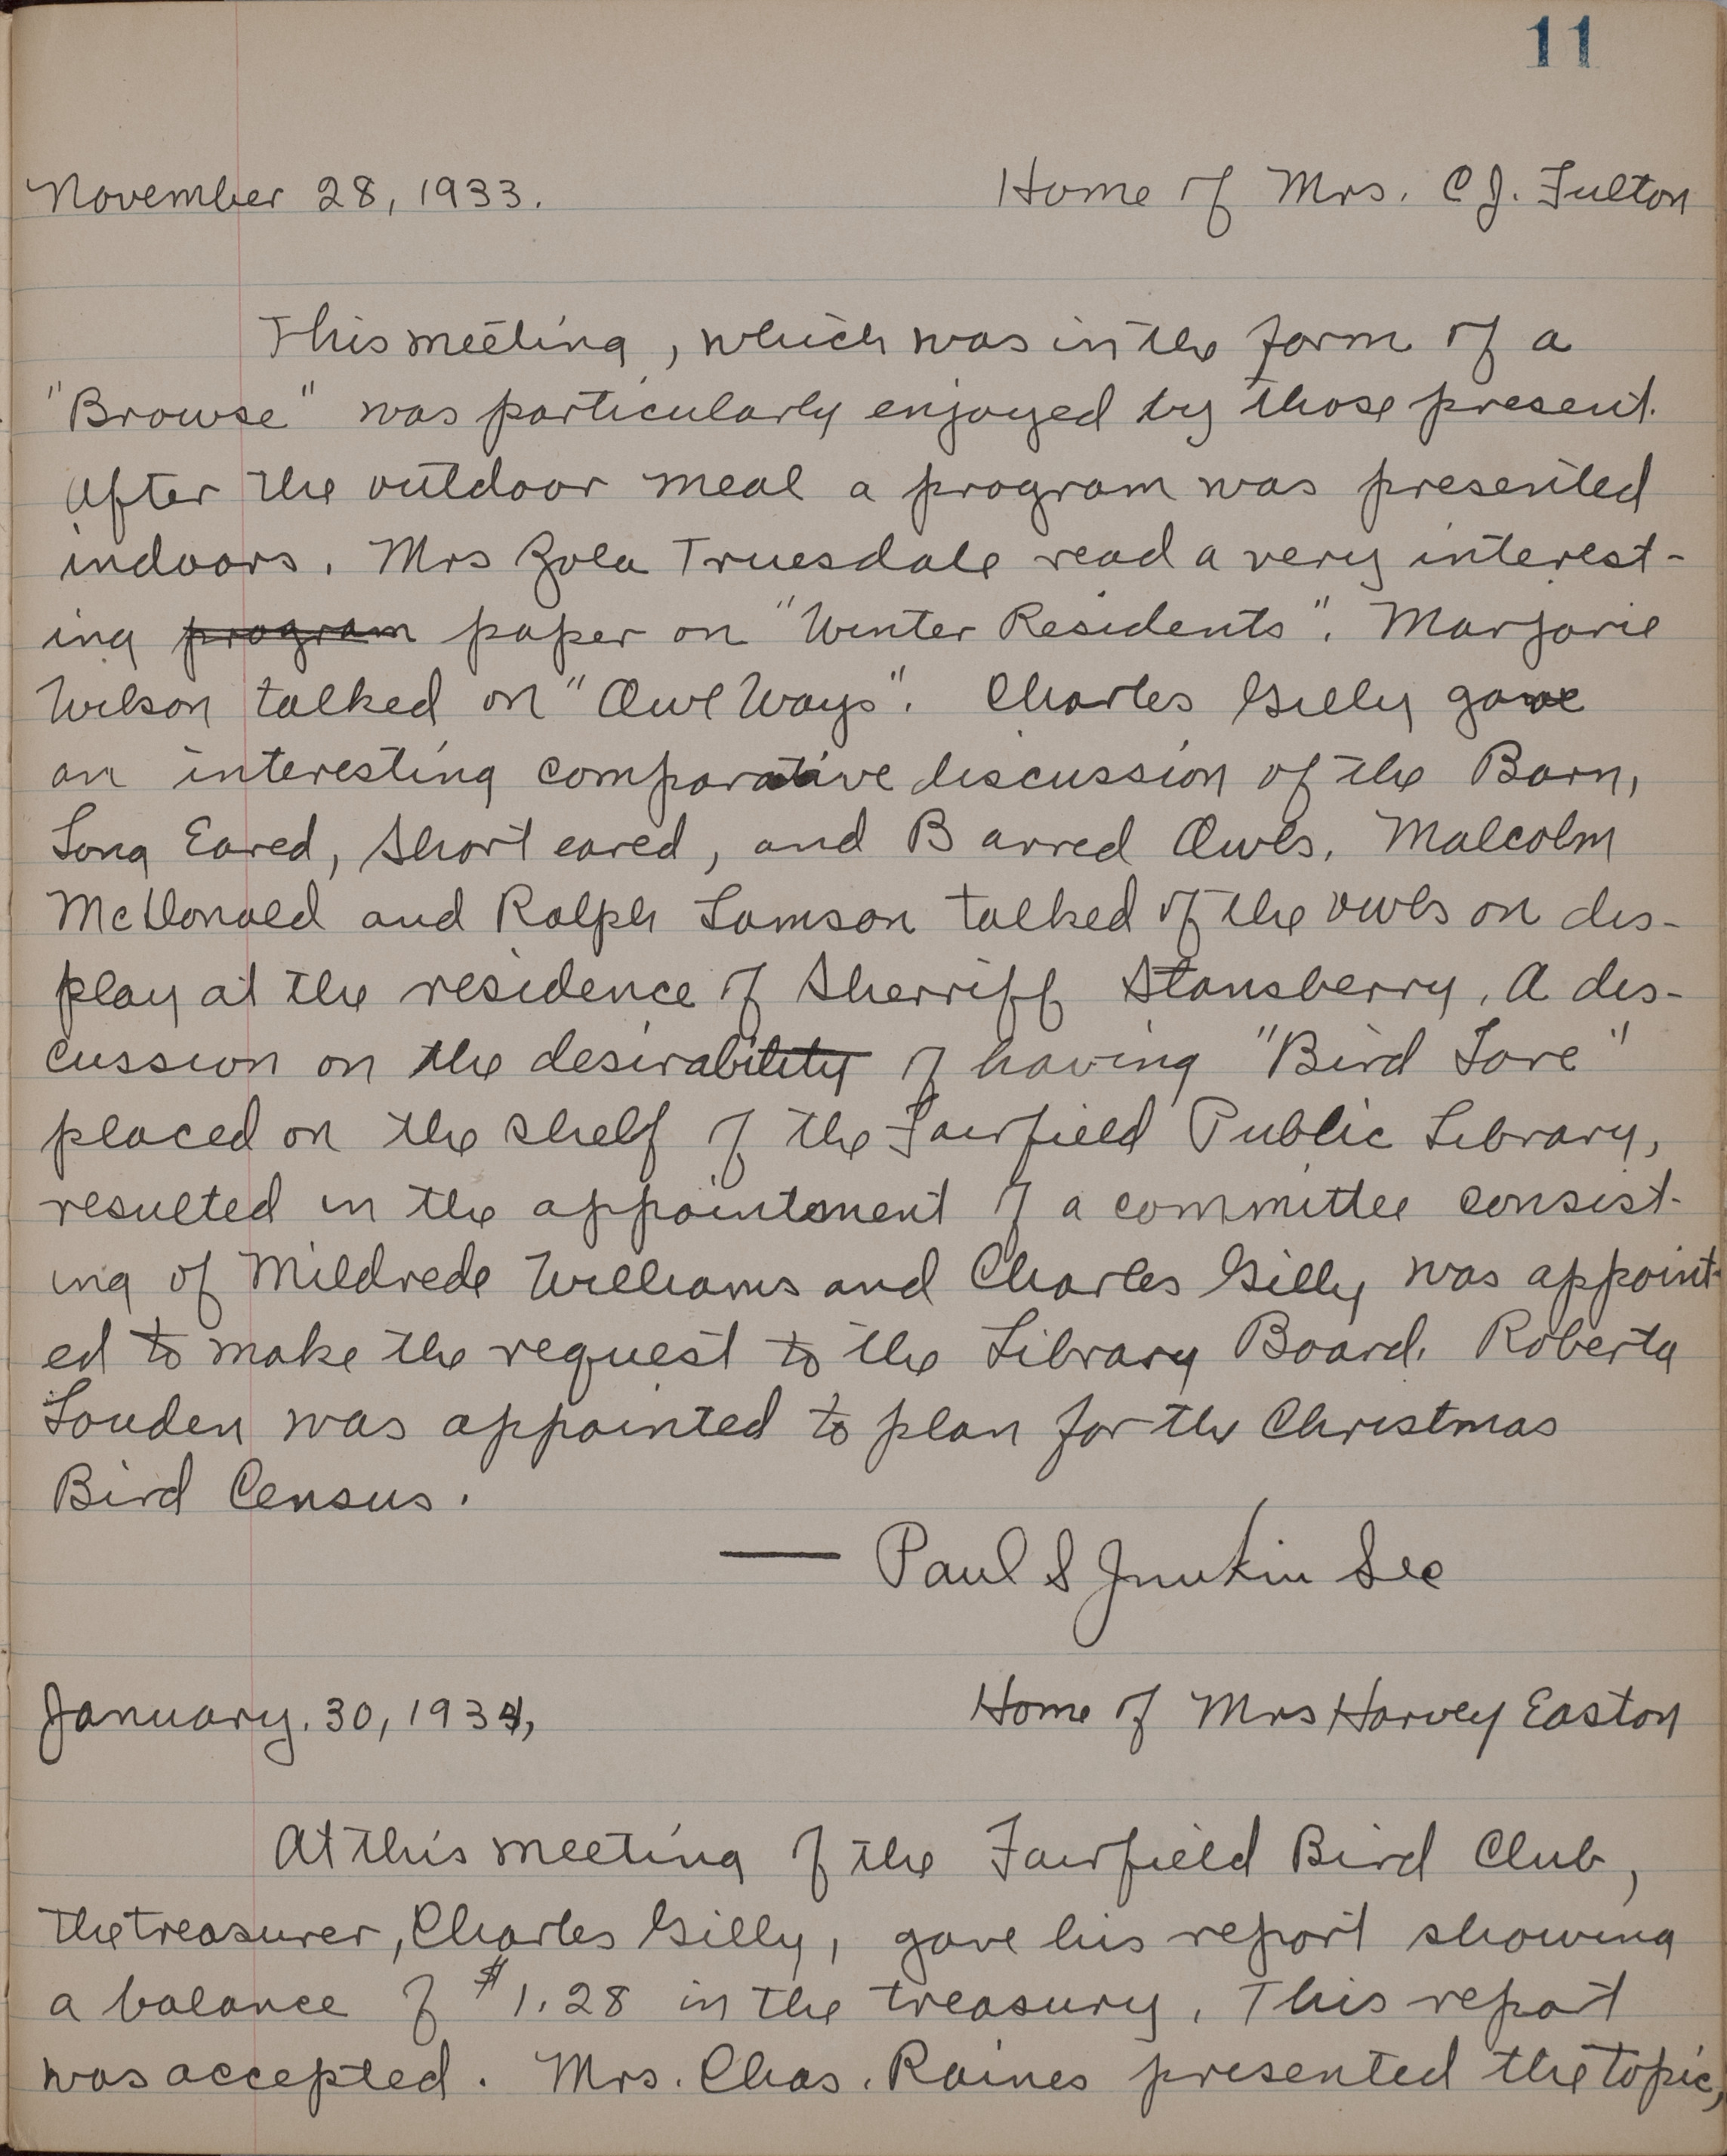 11
November 28, 1933. Home of Mrs. C J. Fulton
This meeting, which was in the form of a
"Browse" was particularly enjoyed by those present.
After the outdoor meal a program was presented
indoors. Mrs Zola Truesdale read a very interest-
ing program paper on "Winter Residents". Marjorie
Wilson talked on "Owl Ways". Charles Gilly gave
an interesting comparative discussion of the Barn,
Long Eared, Short eared, and Barred Owls. Malcolm
McDonald and Ralph Lamson talked of the owls on dis-
play at the residence of Sherriff Stansberry. A dis-
cussion on the desirability of having "Bird Lore"
placed on the shelf of the Fairfield Public Library,
resulted in the appointment of a committee consist-
ing of Mildrede Williams and Charles Gilly was appoint-
ed to make the request to the Library Board. Roberta
Louden was appointed to plan for the Christmas
Bird Census.
— Paul S Junkin Sec
January. 30, 1934, Home of Mrs Harvey Easton
At this meeting of the Fairfield Bird Club,
the treasurer, Charles Gilly, gave his report showing
a balance of $1.28 in the treasury. This report
was accepted. Mrs. Chas. Raines presented the topic,